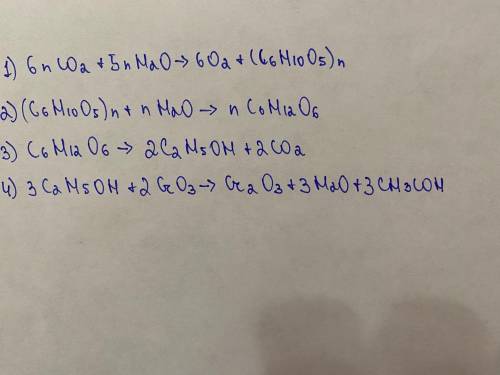 1) 6nCO2 + 5nH2O → 6O2 + (C6H10O5)n
2) (C6H10O5)n + nH2O → nC6H12O6
3) C6H12O6 → 2C2H5OH + 2CO2
4) 3C2H5OH + 2CrO3 → Cr2O3 + 3H2O + 3CH3COH